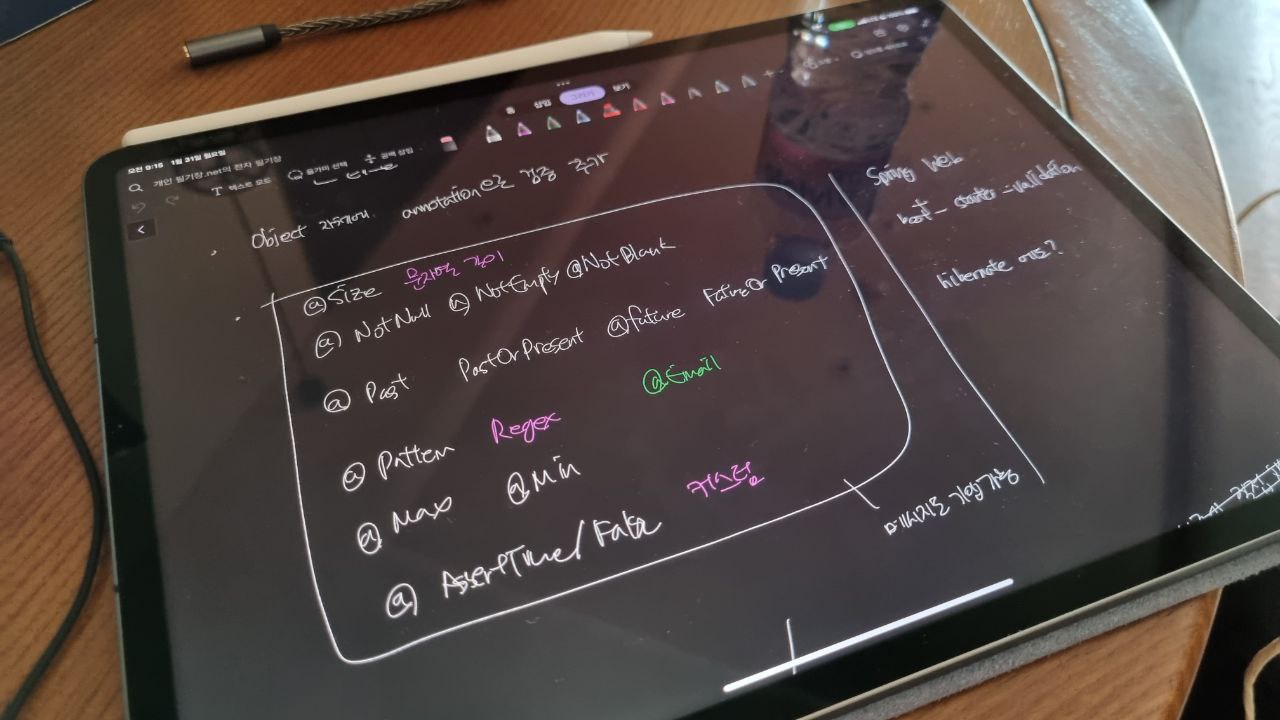 오전 9:15 1월 31일 월요일
개인 필기장.net의 전자 필기장
홈 삽입 그리기 보기
텍스트 모드 올가미 선택 공백 삽입
Object 자체에 annotation으로 검증 추가
@Size 문자열 길이
@NotNull @NotEmpty @NotBlank
@Past PastOrPresent @future FutureOrPresent
@Pattern Regex @Email
@Max @Min
@AssertTrue/False 커스텀
Spring Web
+
boot-starter-validation
hibernate 의도?
메시지도 기입가능